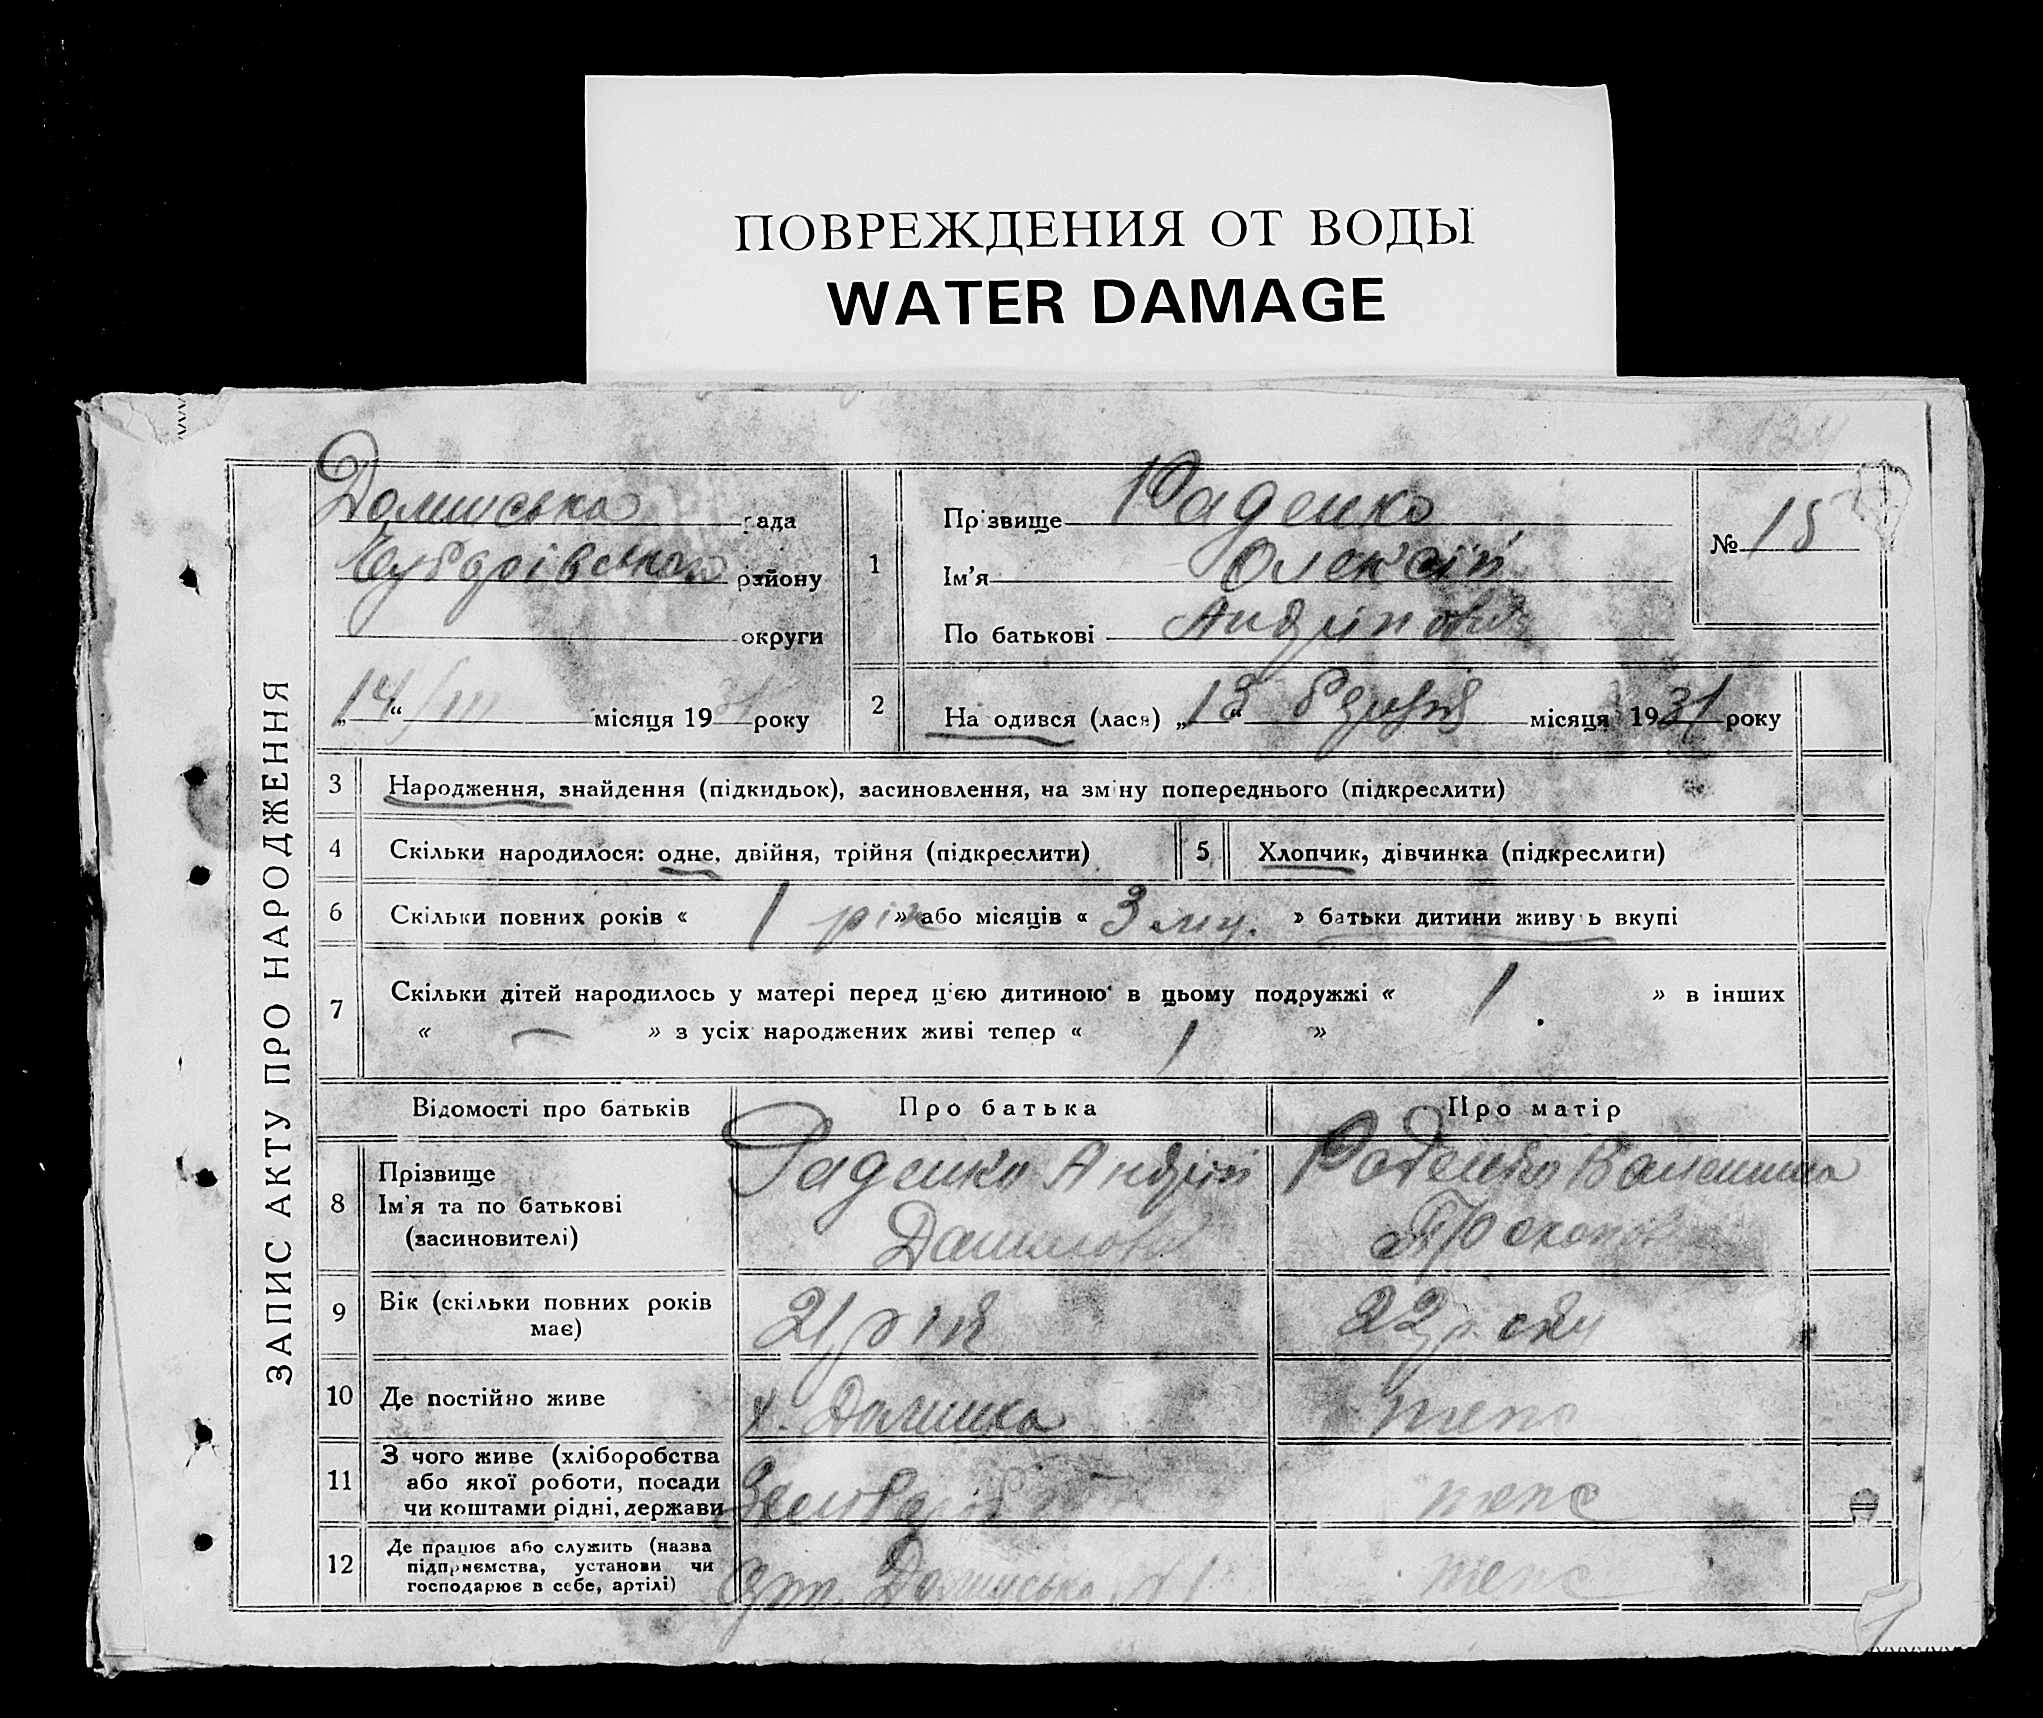 ПОВРЕЖДЕНИЯ ОТ ВОДЫ
WATER DAMAGE
ЗАПИС АКТУ ПРО НАРОДЖЕННЯ
рада
району
округи
„14“ III місяця 1931 року
1
Прізвище Раденко
Ім'я Олексій
По батькові Андрійович
№ 15
2 Народився (лася) „13“ березня місяця 1931 року
3 Народження, знайдення (підкидьок), засиновлення, на зміну попереднього (підкреслити)
4 Скільки народилося: одне, двійня, трійня (підкреслити)
5 Хлопчик, дівчинка (підкреслити)
6 Скільки повних років « 1 рік » або місяців « 3 міц. » батьки дитини живуть вкупі
7 Скільки дітей народилось у матері перед цією дитиною в цьому подружжі « 1 » в інших
« — » з усіх народжених живі тепер « 1 »
Відомості про батьків Про батька Про матір
8 Прізвище
Ім'я та по батькові
(засиновителі)
Раденко Андрій
Раденко Валентина
9 Вік (скільки повних років
має)
21 рік
22 роки
10 Де постійно живе х. Долинка теж
11 З чого живе (хліборобства
або якої роботи, посади
чи коштами рідні, держави
теж
12 Де працює або служить (назва
підприємства, установи чи
господарює в себе, артілі)
теж